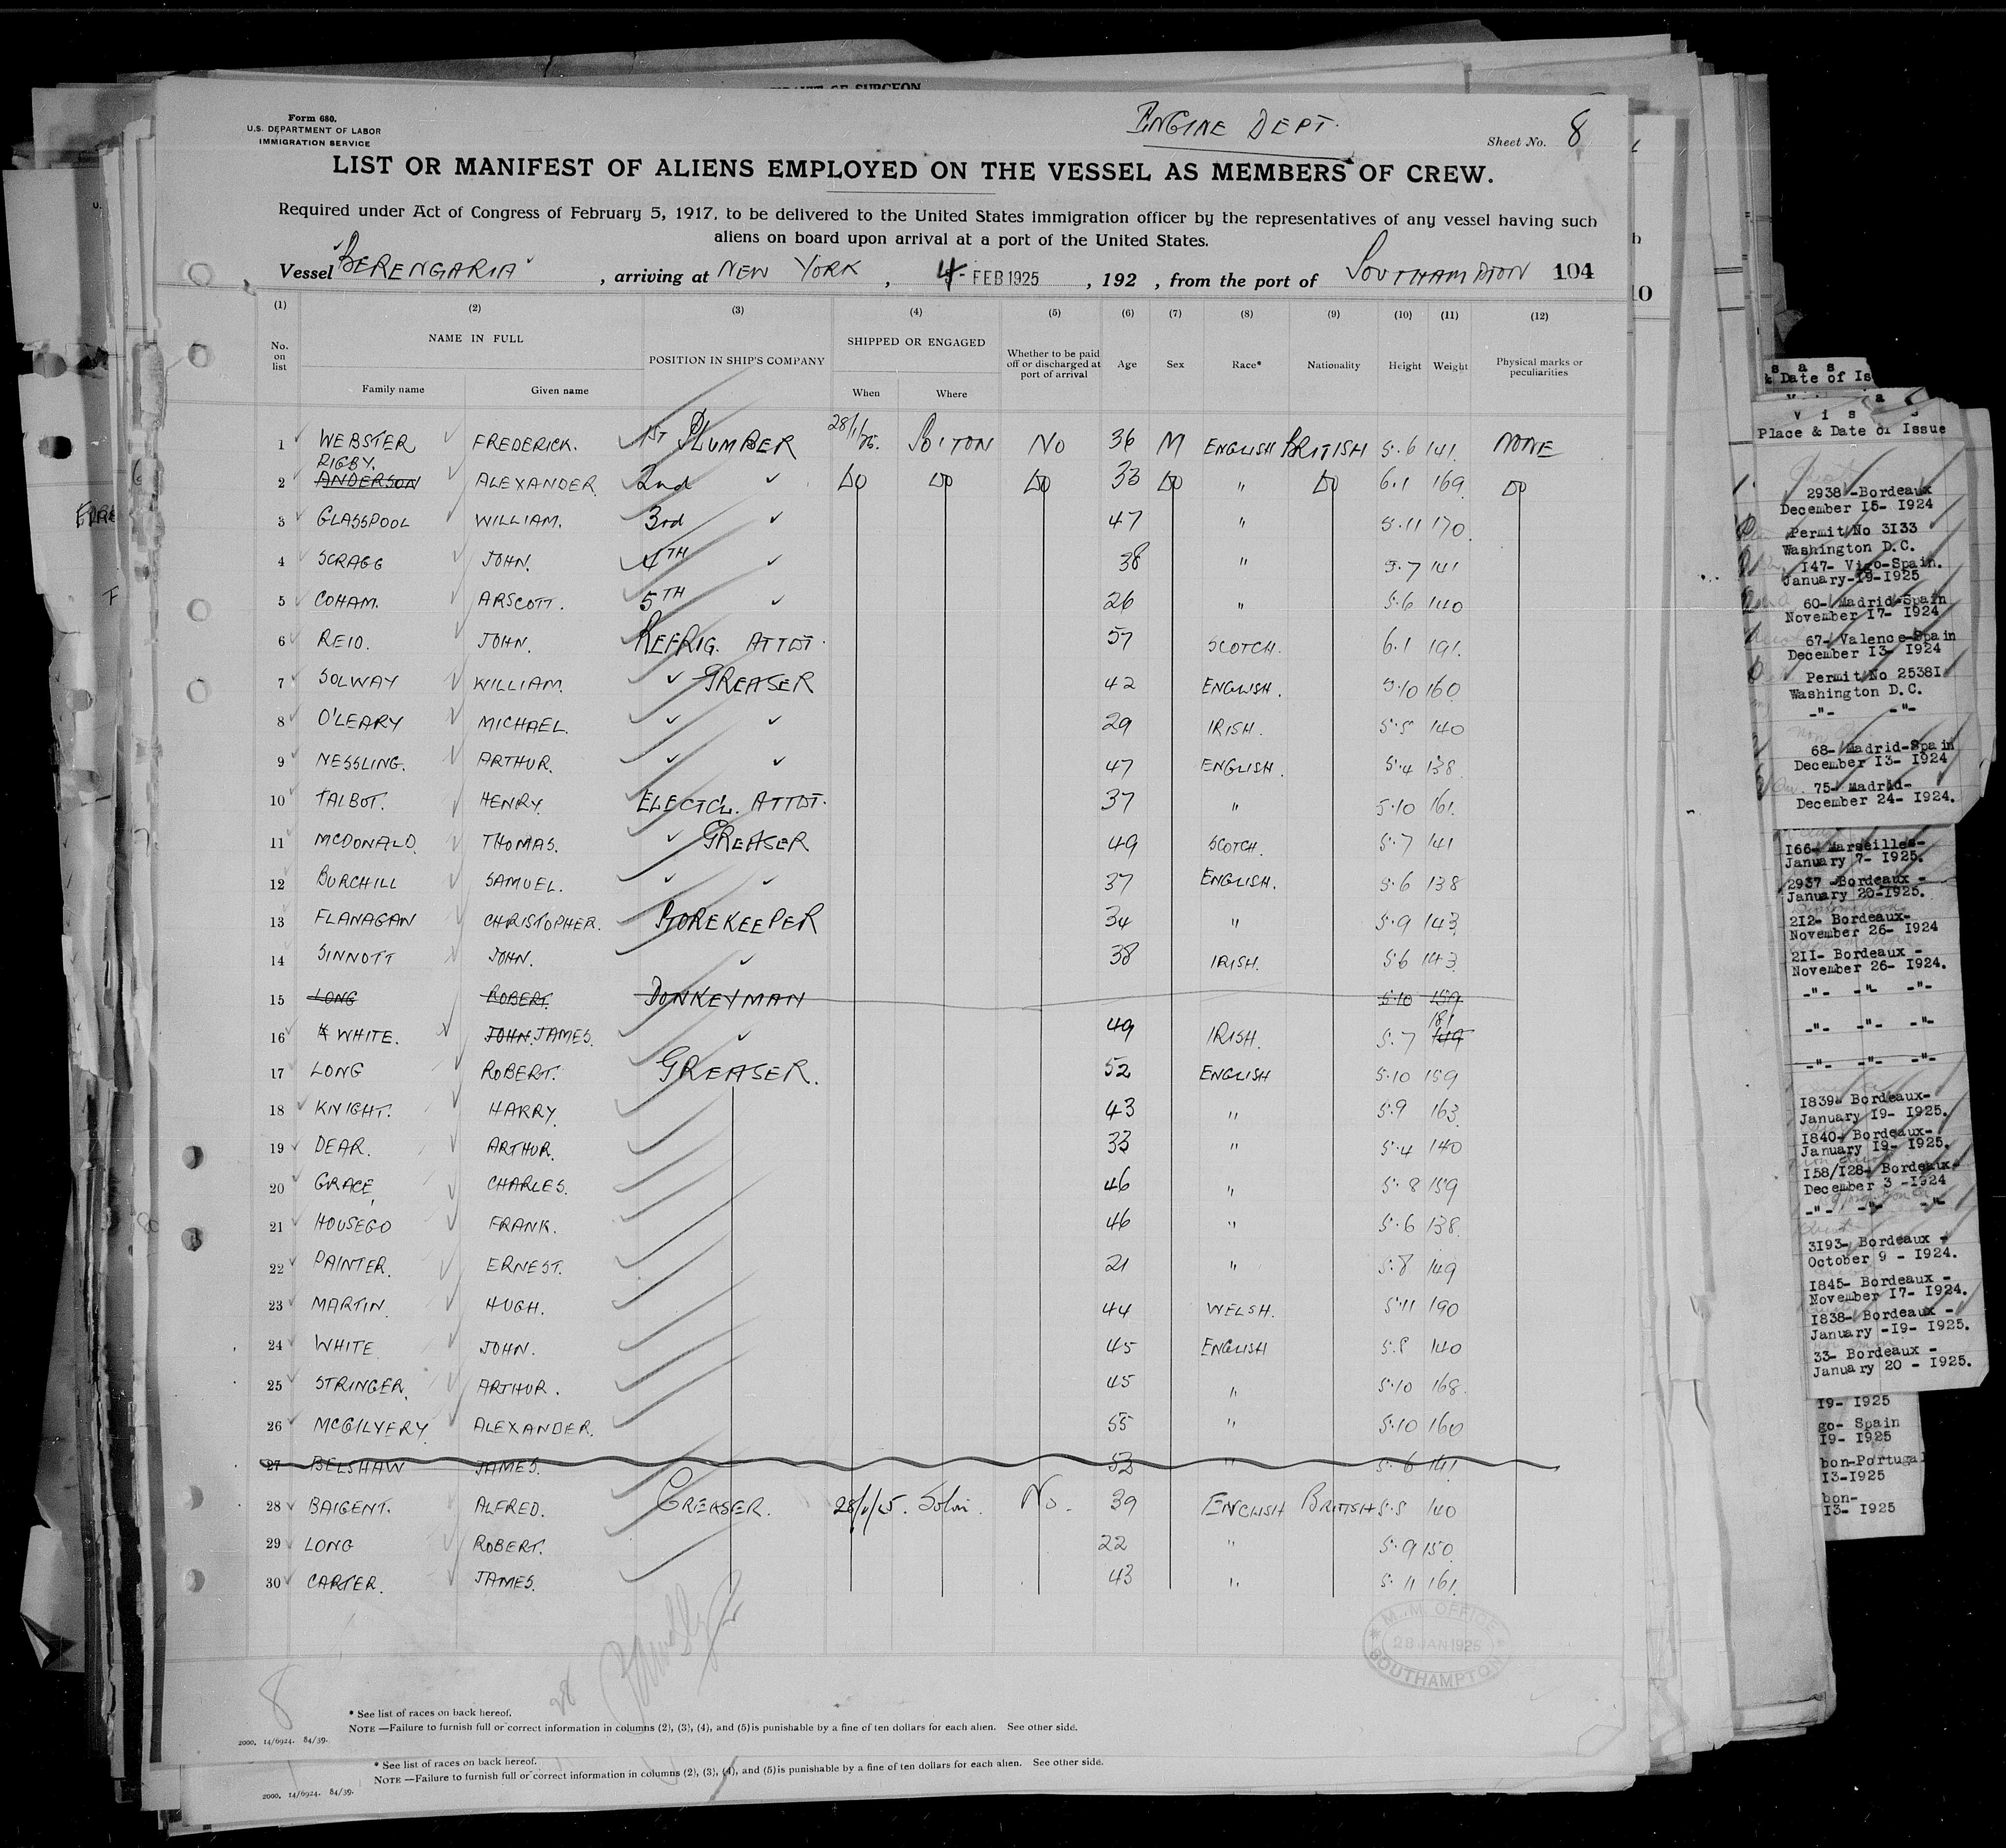 Form 680.
U.S. DEPARTMENT OF LABOR
IMMIGRATION SERVICE
ENGINE DEPT.
Sheet No. 8
LIST OR MANIFEST OF ALIENS EMPLOYED ON THE VESSEL AS MEMBERS OF CREW.
Required under Act of Congress of February 5, 1917, to be delivered to the United States immigration officer by the representatives of any vessel having such
aliens on board upon arrival at a port of the United States.
Vessel BERENGARIA, arriving at NEW YORK, 4 - FEB 1925, 192 , from the port of SOUTHAMPTON 104
(1) (2) (3) (4) (5) (6) (7) (8) (9) (10) (11) (12)
No. on list NAME IN FULL POSITION IN SHIP'S COMPANY SHIPPED OR ENGAGED Whether to be paid off or discharged at port of arrival Age Sex Race* Nationality Height Weight Physical marks or peculiarities
Family name Given name When Where
1 WEBSTER FREDERICK. 1ST PLUMBER 28/1/25. SO'TON NO 36 M ENGLISH BRITISH 5.6 141. NONE
RIGBY.
2 ANDERSON ALEXANDER. 2nd ✓ DO DO DO 33 DO " DO 6.1 169 DO
3 GLASSPOOL WILLIAM. 3rd ✓ 47 " 5.11 170.
4 SCRAGG JOHN. 4TH ✓ 38 " 5.7 141
5 COHAM. ARSCOTT. 5TH ✓ 26 " 5.6 140
6 REID. JOHN. REFRIG. ATTDT. 57 SCOTCH. 6.1 191.
7 SOLWAY WILLIAM. ✓ GREASER 42 ENGLISH. 5.10 160
8 O'LEARY MICHAEL. ✓ ✓ 29 IRISH. 5.5 140
9 NESSLING. ARTHUR. ✓ ✓ 47 ENGLISH. 5.4 138.
10 TALBOT. HENRY. ELECTCL. ATTDT. 37 " 5.10 161.
11 MCDONALD. THOMAS. ✓ GREASER 49 SCOTCH. 5.7 141
12 BURCHILL SAMUEL. ✓ ✓ 37 ENGLISH. 5.6 138
13 FLANAGAN CHRISTOPHER. STOREKEEPER 34 " 5.9 143.
14 SINNOTT JOHN. ✓ 38 IRISH. 5.6 143.
15 LONG ROBERT. DONKEYMAN 5.10 159
16 WHITE. JOHN. JAMES. ✓ 49 IRISH. 5.7 149 181
17 LONG ROBERT. GREASER. 52 ENGLISH 5.10 159
18 KNIGHT. HARRY. 43 " 5.9 163.
19 DEAR. ARTHUR. 33 " 5.4 140
20 GRACE CHARLES. 46 " 5.8 159
21 HOUSEGO FRANK. 46 " 5.6 138.
22 PAINTER. ERNEST. 21 " 5.8 149
23 MARTIN. HUGH. 44 WELSH. 5.11 190
24 WHITE JOHN. 45 ENGLISH 5.8 140
25 STRINGER. ARTHUR. 45 " 5.10 168.
26 MCGILVERY. ALEXANDER. 55 " 5.10 160
27 BELSHAW JAMES. 52 " 5.6 141
28 BAIGENT. ALFRED. GREASER. 28/1/25. Soton. No. 39 ENGLISH BRITISH 5.5 140
29 LONG ROBERT. 22 " 5.9 150.
30 CARTER. JAMES. 43 " 5.11 161.
M.M. OFFICE
28 JAN 1925
SOUTHAMPTON
8
* See list of races on back hereof.
NOTE —Failure to furnish full or correct information in columns (2), (3), (4), and (5) is punishable by a fine of ten dollars for each alien. See other side.
2000. 14/6924. 84/39.
* See list of races on back hereof.
NOTE —Failure to furnish full or correct information in columns (2), (3), (4), and (5) is punishable by a fine of ten dollars for each alien. See other side.
2000. 14/6924. 84/39.
& Date of Is
Place & Date of Issue
2938 -Bordeaux
December 15- 1924
Permit No 3133
Washington D.C.
147- Vigo-Spain.
January-19-1925
60- Madrid-Spain
November 17- 1924
67- Valence-Spain
December 13- 1924
Permit No 25381
Washington D.C.
-"- -"-
68- Madrid-Spain
December 13- 1924
75- Madrid-
December 24- 1924.
166- Marseilles-
January 7- 1925.
2937 -Bordeaux -
January 20-1925.
212- Bordeaux-
November 26- 1924
211- Bordeaux -
November 26- 1924.
-"- -"- -"-
-"- -"- -"-
-"- -"- -"-
1839- Bordeaux-
January 19- 1925.
1840- Bordeaux-
January 19- 1925.
158/128- Bordeaux-
December 3 -1924
-"- -"- -"-
3193- Bordeaux -
October 9 - 1924.
1845- Bordeaux -
November 17- 1924.
1838- Bordeaux -
January -19- 1925.
33- Bordeaux -
January 20 - 1925.
19- 1925
go- Spain
19- 1925
bon-Portugal
13-1925
bon-
13- 1925